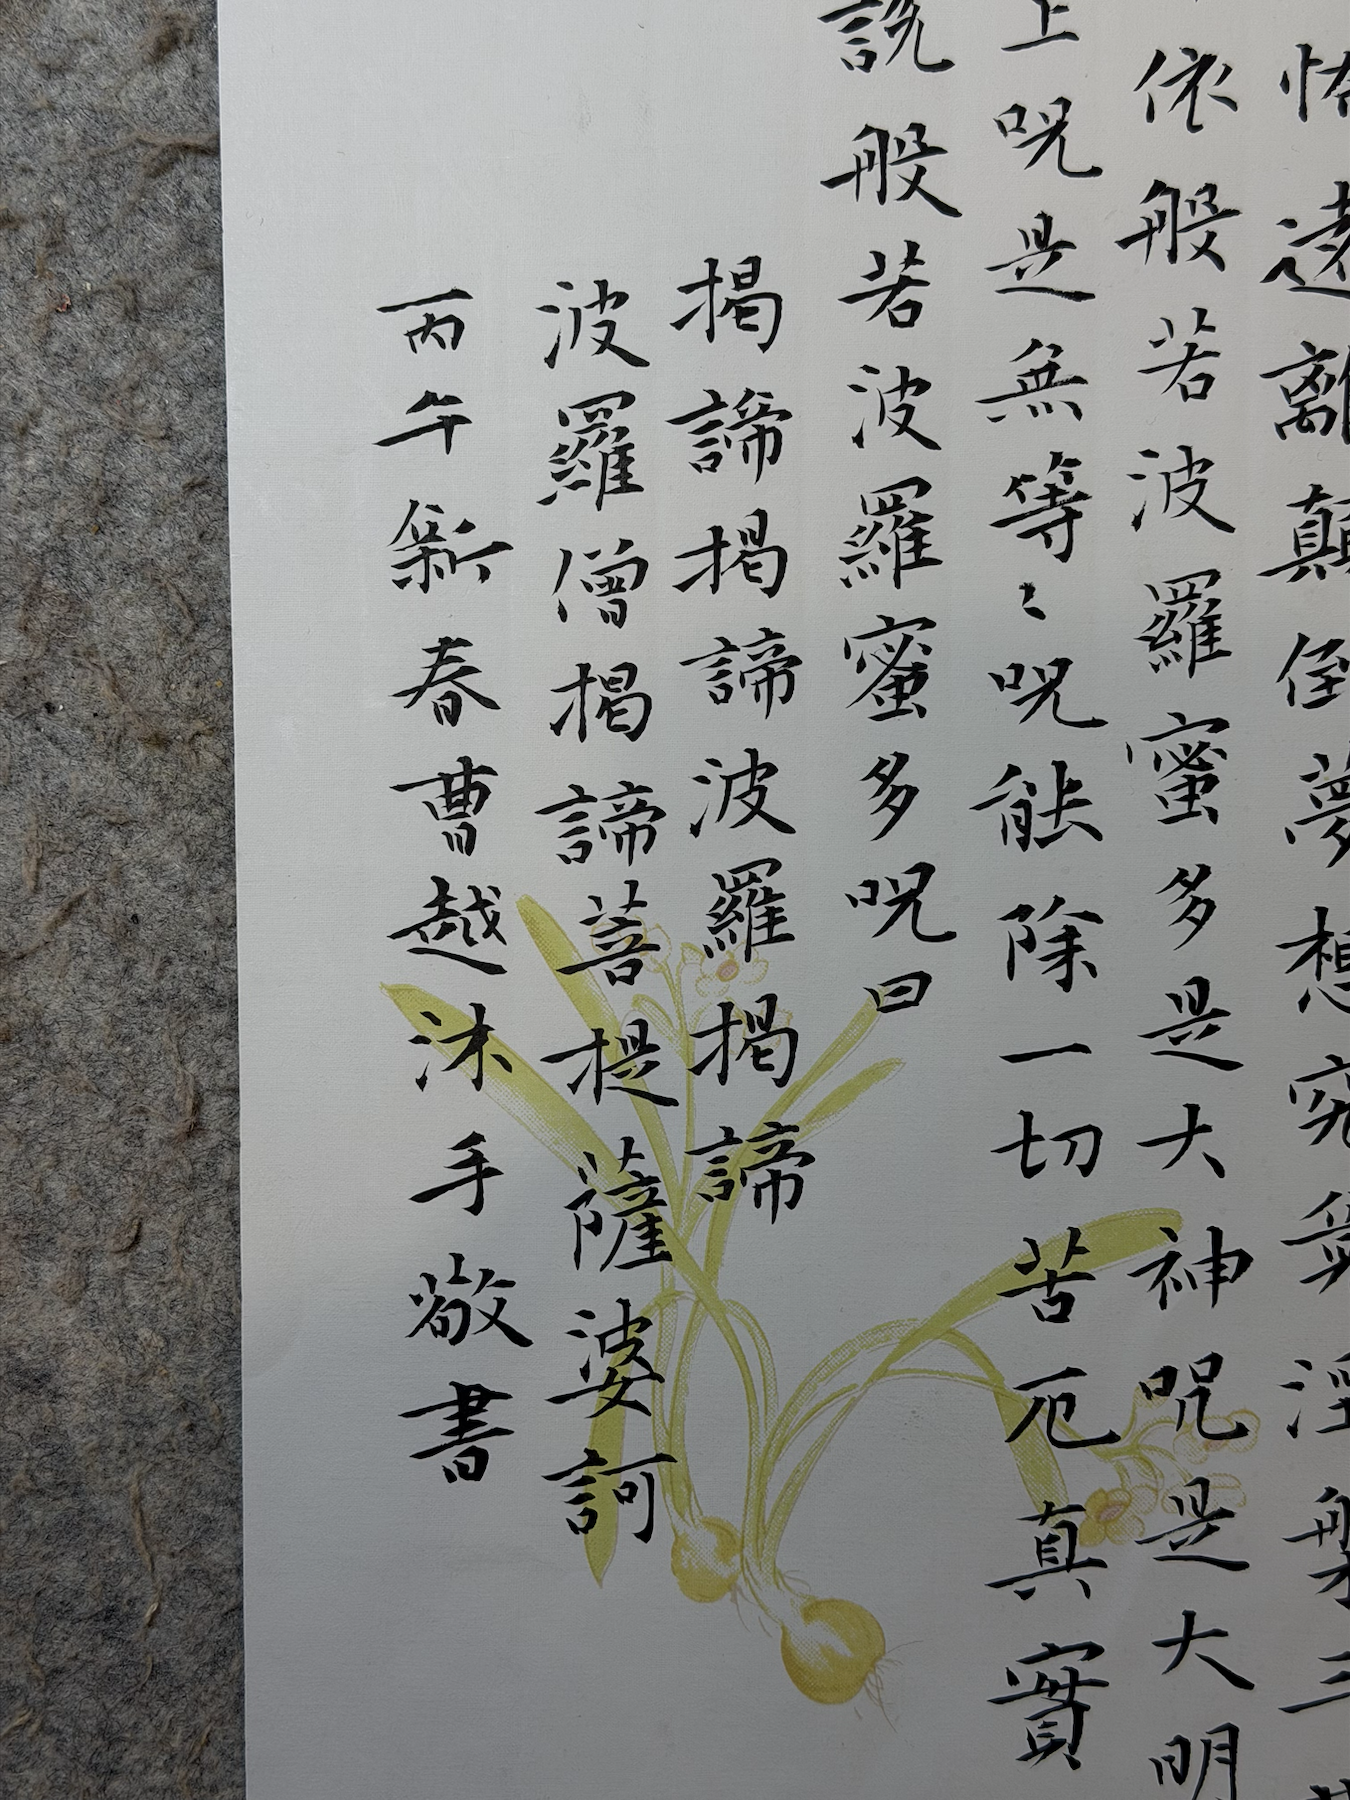 怖遠離顛倒夢想究竟涅槃三
依般若波羅蜜多是大神咒是大明
上咒是無等〻咒能除一切苦厄真實
説般若波羅蜜多咒曰
揭諦揭諦波羅揭諦
波羅僧揭諦菩提薩婆訶
丙午新春曹越沐手敬書